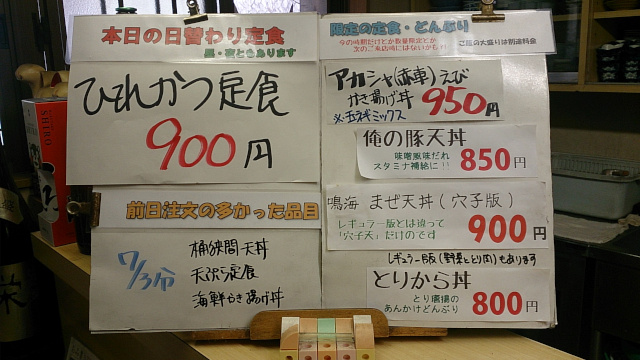 本日の日替わり定食
昼・夜ともあります
ひれかつ定食
900円
前日注文の多かった品目
7/3分
桶狭間天丼
天ぷら定食
海鮮かき揚げ丼
限定の定食・どんぶり
今の時期だけとか数量限定とか
次のご来店時にはないかも
ご飯の大盛りは別途料金
アカシャ(赤車)えび
かき揚げ丼 950円
※玉ネギミックス
俺の豚天丼
味噌風味だれ
スタミナ補給に!! 850円
鳴海 まぜ天丼(穴子版)
レギュラー版とは違って
「穴子天」だけのです 900円
レギュラーB版(野菜ととり肉)もあります
とりから丼
とり唐揚の
あんかけどんぶり 800円